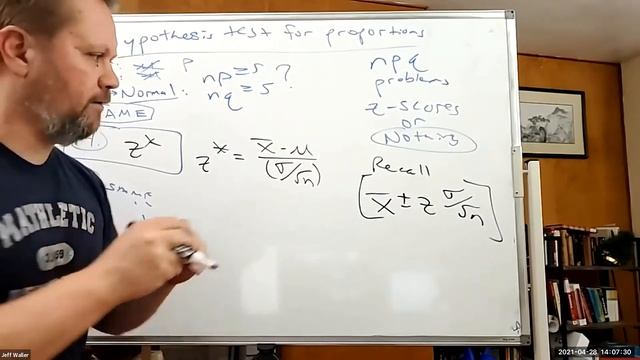 ypothesis test for proportions
p
Normal:
np ≥ 5 ?
nq ≥ 5
AME
z*
z* = x̄ - μ / (σ/√n)
npq
problems
z-scores
or
Nothing
Recall
[x̄ ± z σ/√n]
MATHLETIC
Jeff Waller
2021-04-28 14:07:30